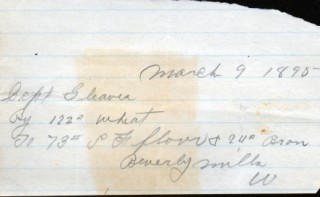 March 9 1895
Capt Gleaves
By 122⁰ Wheat
To 73⁰ S F flour & 24⁰ Bran
Beverly Mills
W